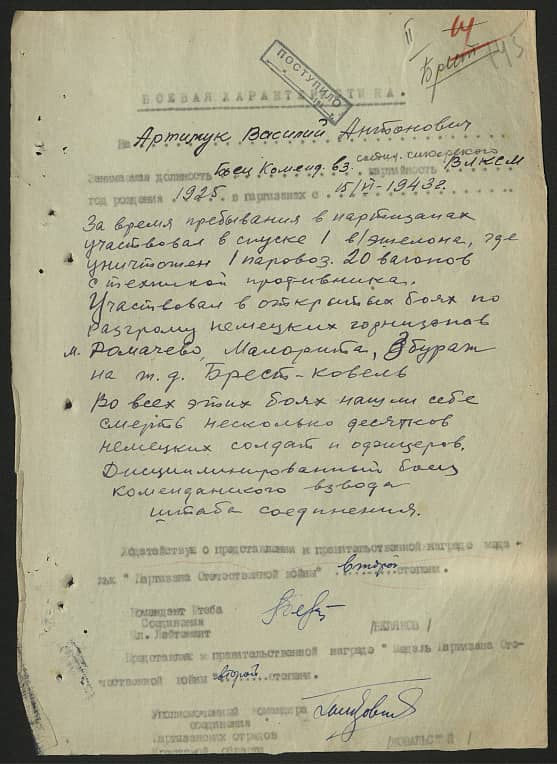 II 14
Брест 145
ПОСТУПИЛО
БОЕВАЯ ХАРАКТЕРИСТИКА.
На Артимук Василий Антонович
Занимаемая должность боец Коменд. вз. партийность ВЛКСМ
год рождения 1925 в партизанах с 15/VI-1943г.
За время пребывания в партизанах
участвовал в спуске 1 в/эшелона, где
уничтожен 1 паровоз. 20 вагонов
с техникой противника.
Участвовал в открытых боях по
разгрому немецких горнизонов
м. Домачево, Малорита, Збураж
на ж.д. Брест-Ковель
Во всех этих боях нашли себе
смерть несколько десятков
немецких солдат и офицеров.
Дисциплинированный боец
коменданского взвода
штаба соединения.
Ходатайствую о представлении к правительственной награде меда-
лью "Партизана Отечественной войны" второй степени.
Комендант Штаба
Соединения
Мл. Лейтенант
Представлен к правительственной награде "Медаль Партизана Оте-
чественной войны второй степени.
Уполномоченный командира
соединения
Партизанских отрядов
Брестской области /КОВАЛЬСКИЙ/